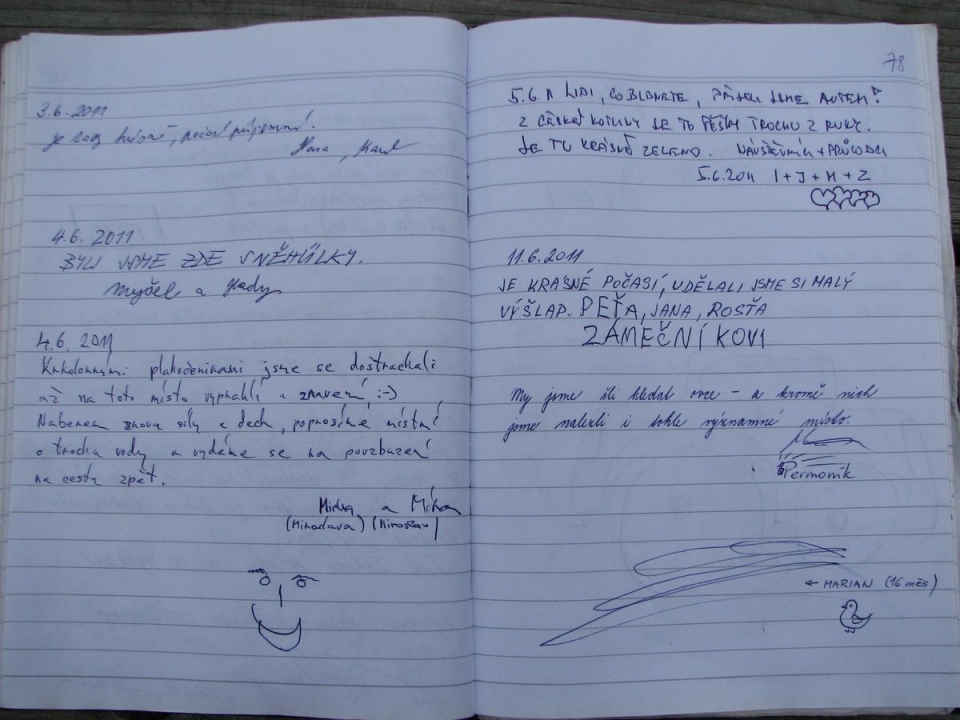 3.6.2011
je tady krásně, počasí příjemné.
Hana, Karel
4.6.2011
BYLI JSME ZDE SNĚHŮLKY.
myšel a Hady
4.6.2011
Krkolomnými plahočeninami jsme se doštrachali
až na toto místo vyprahlí a znavení :-)
Nabereme znova síly a dech, poprosíme místní
o trochu vody a vydáme se na povzbuzení
na cestu zpět.
Mirka a Mirek
(Miroslava) (Miroslav)
78
5.6.11 LIDI, CO BLBNETE, PŘIJELI JSME AUTEM!
Z ČESKÉ KOTLINY JE TO PĚŠKY TROCHU Z RUKY.
JE TU KRÁSNĚ ZELENO. NÁVŠTĚVNÍK + PRŮVODCI
5.6.2011 I + J + M + Z
11.6.2011
JE KRÁSNÉ POČASÍ, UDĚLALI JSME SI MALÝ
VÝŠLAP. PEŤA, JANA, ROSŤA
ZÁMEČNÍKOVI
My jsme šli hledat ovce – a kromě nich
jsme nalezli i tohle významné místo.
Permoník
← MARIAN (16 měs)